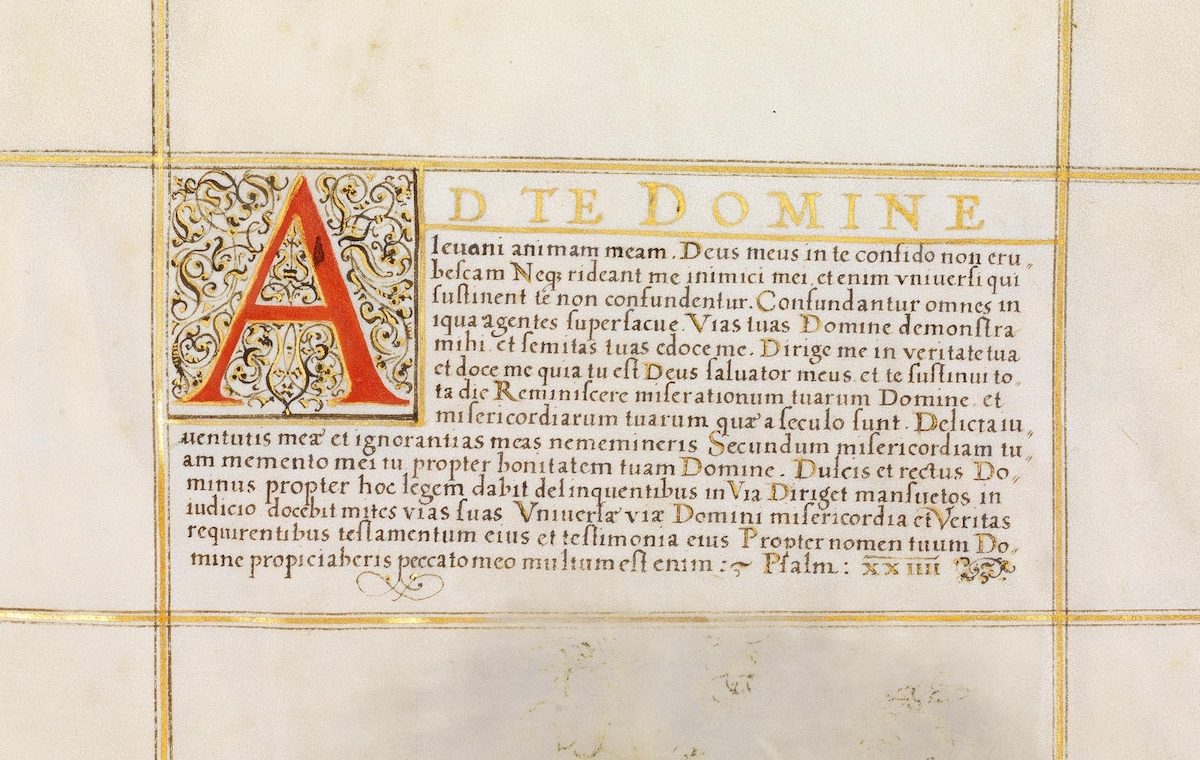 AD TE DOMINE
leuaui animam meam. Deus meus in te confido non eru„
bescam Neq; rideant me inimici mei, et enim vniuersi qui
sustinent te non confundentur. Confundantur omnes in
iqua agentes superfacue. Vias tuas Domine demonstra
mihi et semitas tuas edoce me. Dirige me in veritate tua
et doce me quia tu est Deus saluator meus et te sustinui to„
ta die Reminiscere miserationum tuarum Domine et
misericordiarum tuarum quæ a seculo sunt. Delicta iu„
uentutis meæ et ignorantias meas nememineris Secundum misericordiam tu„
am memento mei tu propter bonitatem tuam Domine. Dulcis et rectus Do„
minus propter hoc legem dabit delinquentibus in Via Diriget mansuetos in
iudicio docebit mites vias suas Vniuersæ viæ Domini misericordia et Veritas
requirentibus testamentum eius et testimonia eius Propter nomen tuum Do„
mine propiciaberis peccato meo multum est enim :~ Psalm : xxiiii